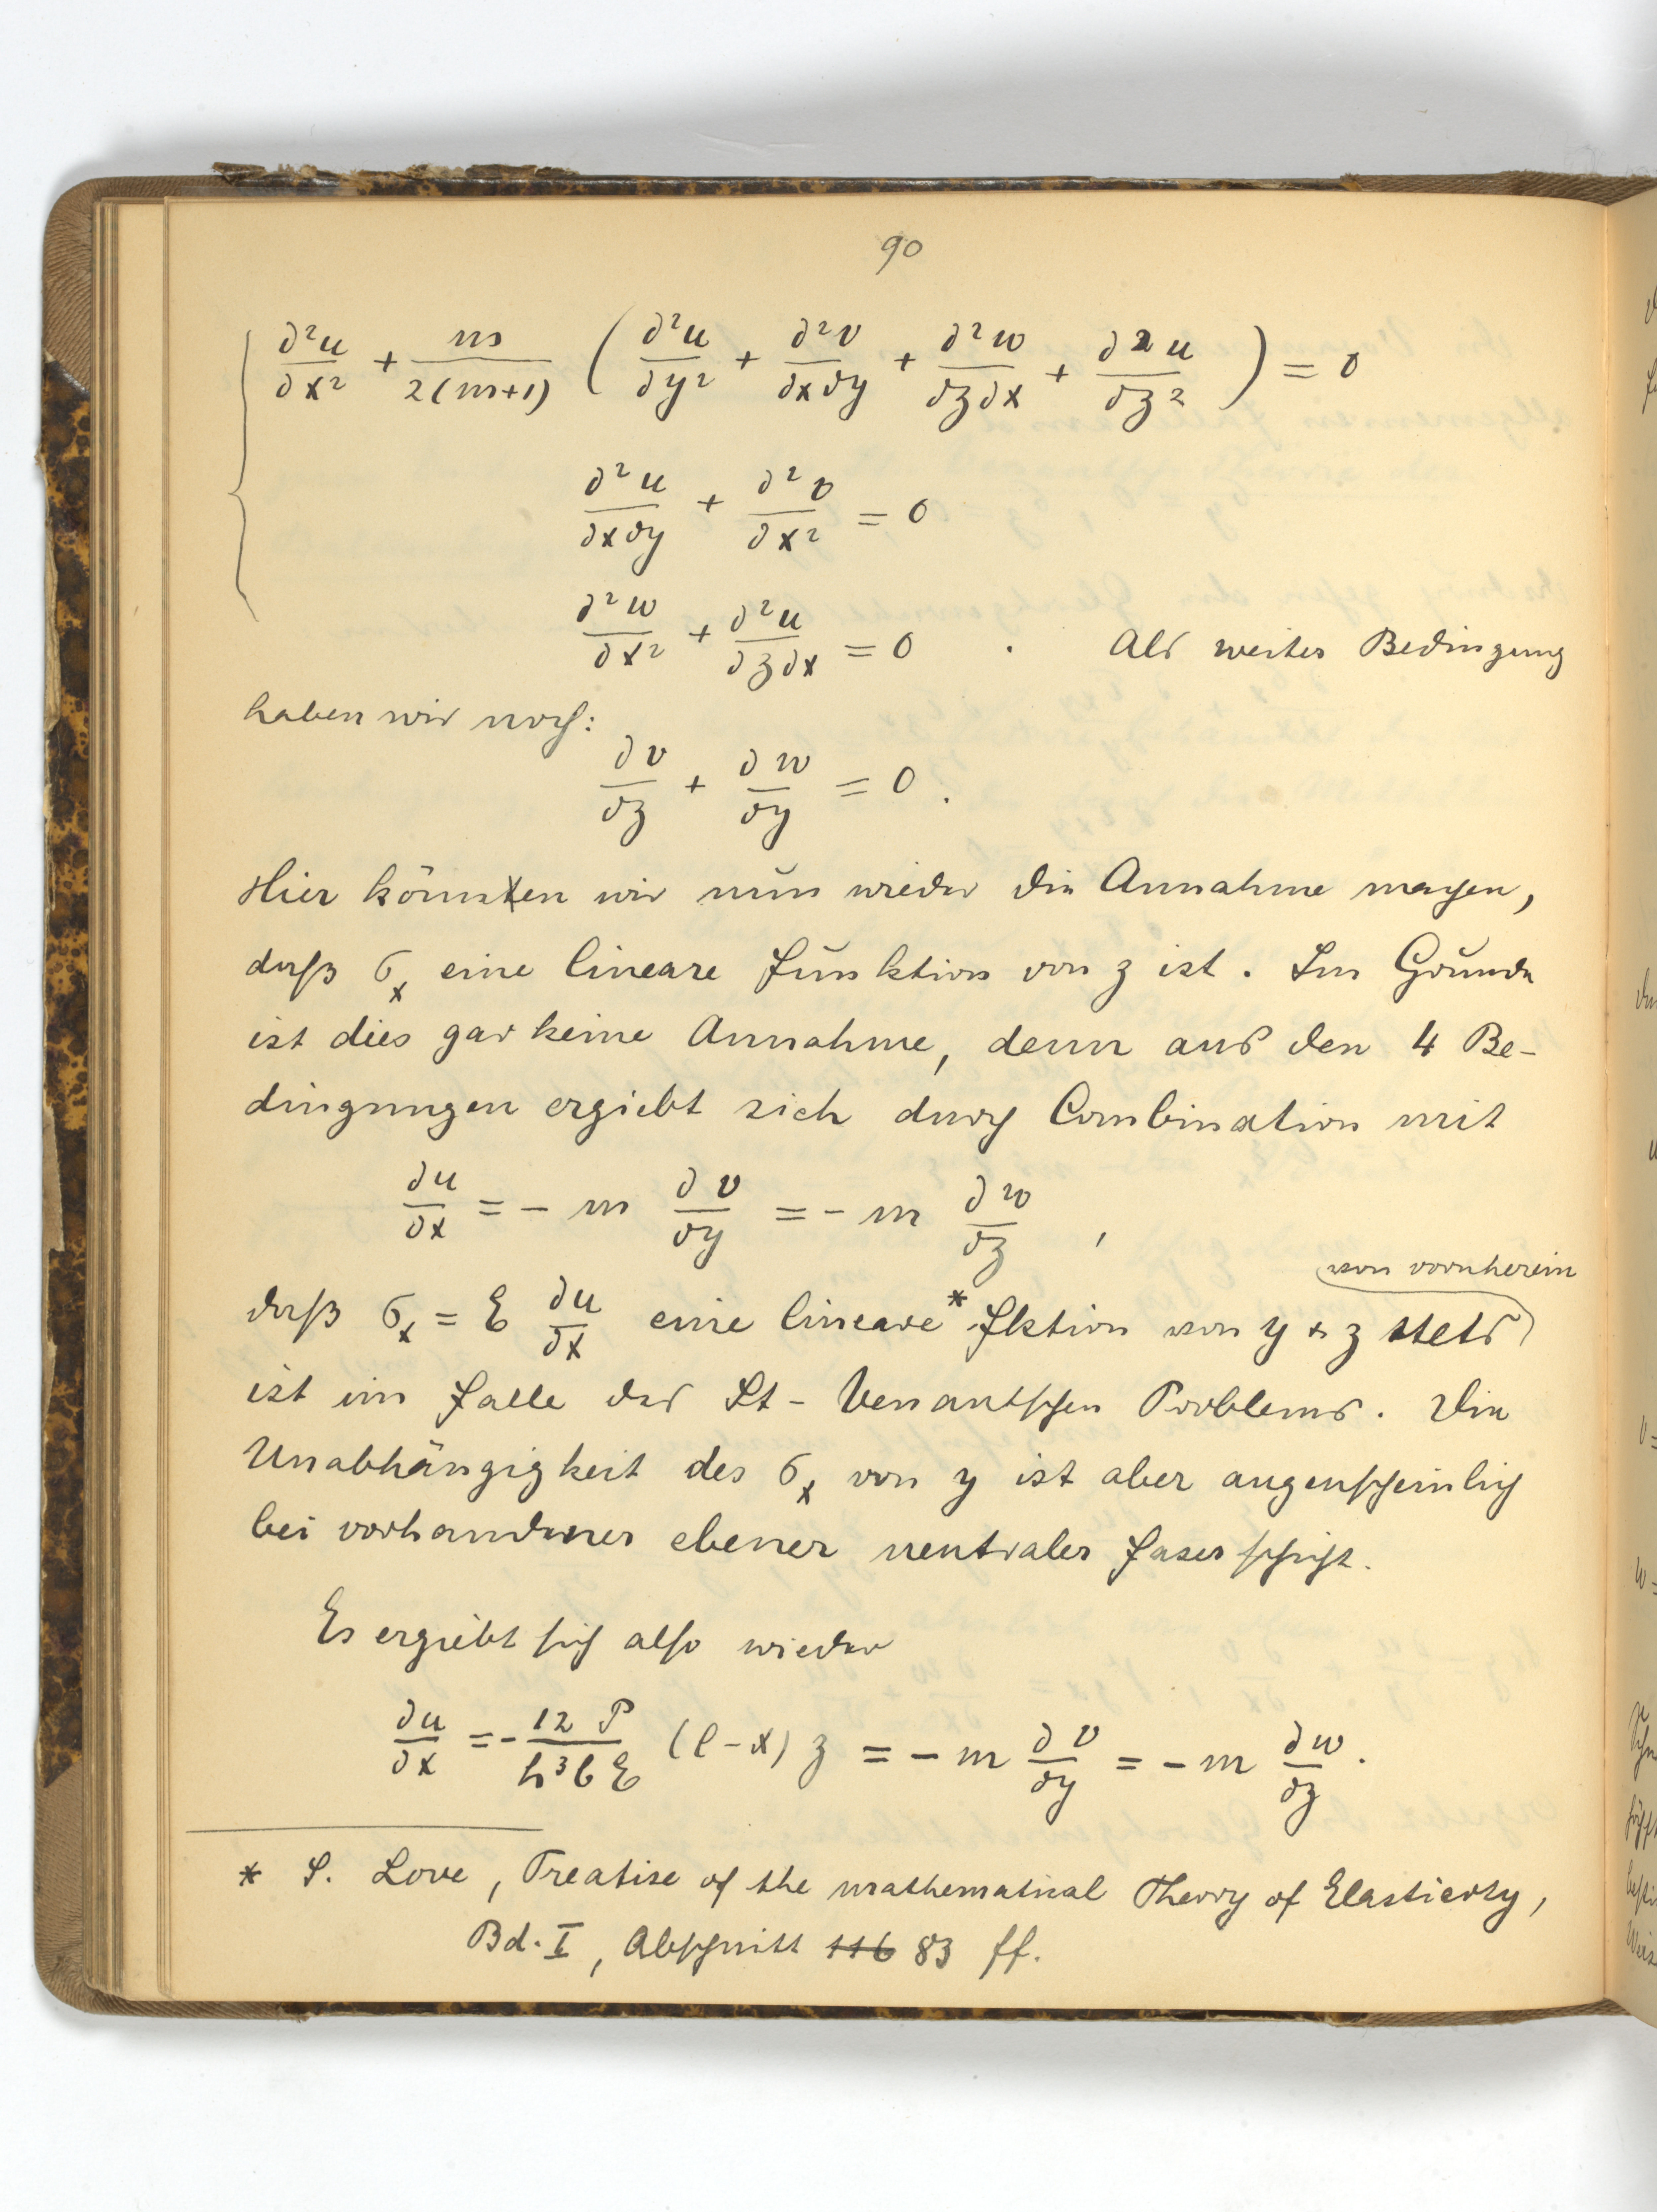 90
∂²u/∂x² + m/2(m+1) (∂²u/∂y² + ∂²v/∂x∂y + ∂²w/∂z∂x + ∂²u/∂z²) = 0
∂²u/∂x∂y + ∂²v/∂x² = 0
∂²w/∂x² + ∂²u/∂z∂x = 0 . Als weiter Bedingung
haben wir noch:
∂v/∂z + ∂w/∂y = 0 .
Hier könnten wir nun wieder die Annahme machen,
daß σₓ eine lineare Funktion von z ist. Im Grunde
ist dies gar keine Annahme, denn aus den 4 Be-
dingungen ergiebt sich durch Combination mit
∂u/∂x = - m ∂v/∂y = - m ∂w/∂z ,
von vornherein
daß σₓ = E ∂u/∂x eine lineare* Fktion von y & z stets
ist im Falle des St-Venantschen Problems. Die
Unabhängigkeit des σₓ von y ist aber augenscheinlich
bei vorhandener ebener neutraler Faserschicht.
Es ergiebt sich also wieder
∂u/∂x = - 12 P/h³bE (l-x) z = - m ∂v/∂y = - m ∂w/∂z .
* S. Love, Treatise of the mathematical Theory of Elasticity,
Bd. I, Abschnitt 116 83 ff.